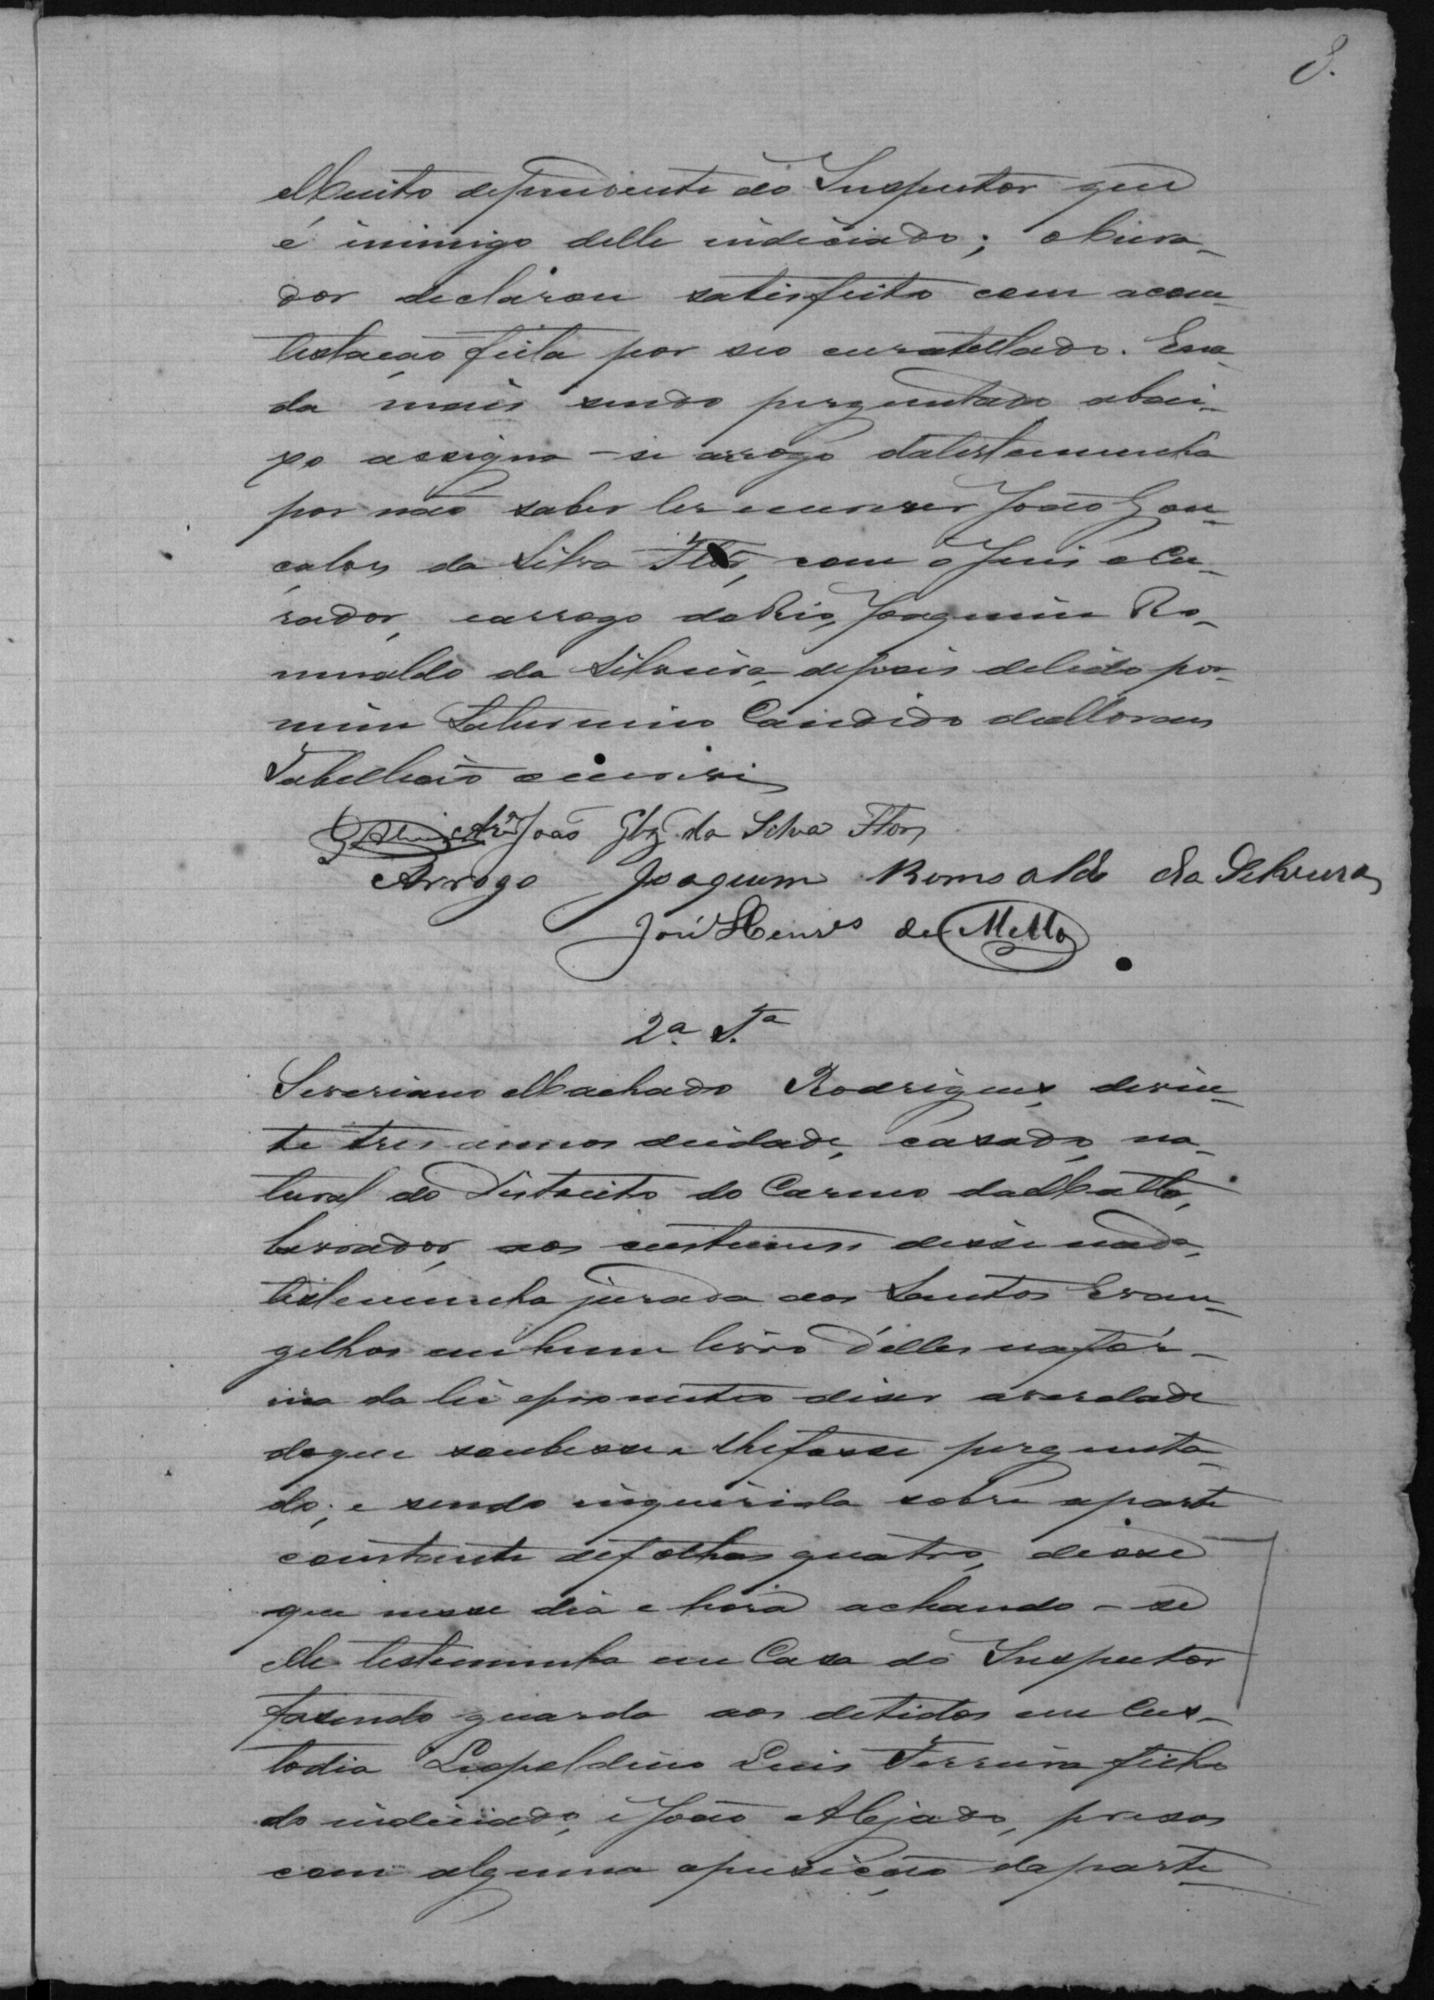 8.
Muito dependente do Inspector que
é inimigo delle indiciado; o Cura-
dor declarou satisfeito com a con-
testação feita por seo curatellado. E na-
da mais sendo perguntado abai-
xo assigna-se arrogo da testemunha
por não saber ler e escrever João Gon-
çalves da Silva Flôr, com o Juis o Cu-
rador, e arrogo do Réo, Joaquim Ro-
mualdo da Silveira, depois de lido por
mim Saturnino Candido de Moraes
Tabellião o escrivi
João Glz da Silva Flor
Arrogo Joaquim Romoaldo da Silveira
José Henrs de Mello
2ª Tª
Severiano Machado Rodrigues, de vin-
te tres annos de idade, casado, na-
tural do Distreito do Carmo da Matta,
lavrador, aos custumes disse nada,
testemunha jurada aos Santos Evan-
gelhos em hum livro d'elles na fór-
ma da lei e prometteo diser a verdade
do que soubesse e lhe fosse pergunta-
do; e sendo inquirida sobre a parte
constante de folhas quatro, disse
que nesse dia e hora achando-se
elle testemunha em Casa do Inspector
fasendo guarda aos detidos em Cus-
todia Leopoldino Luis Ferreira filho
do indiciado, e João Alejado, presos
com alguma oposição da parte